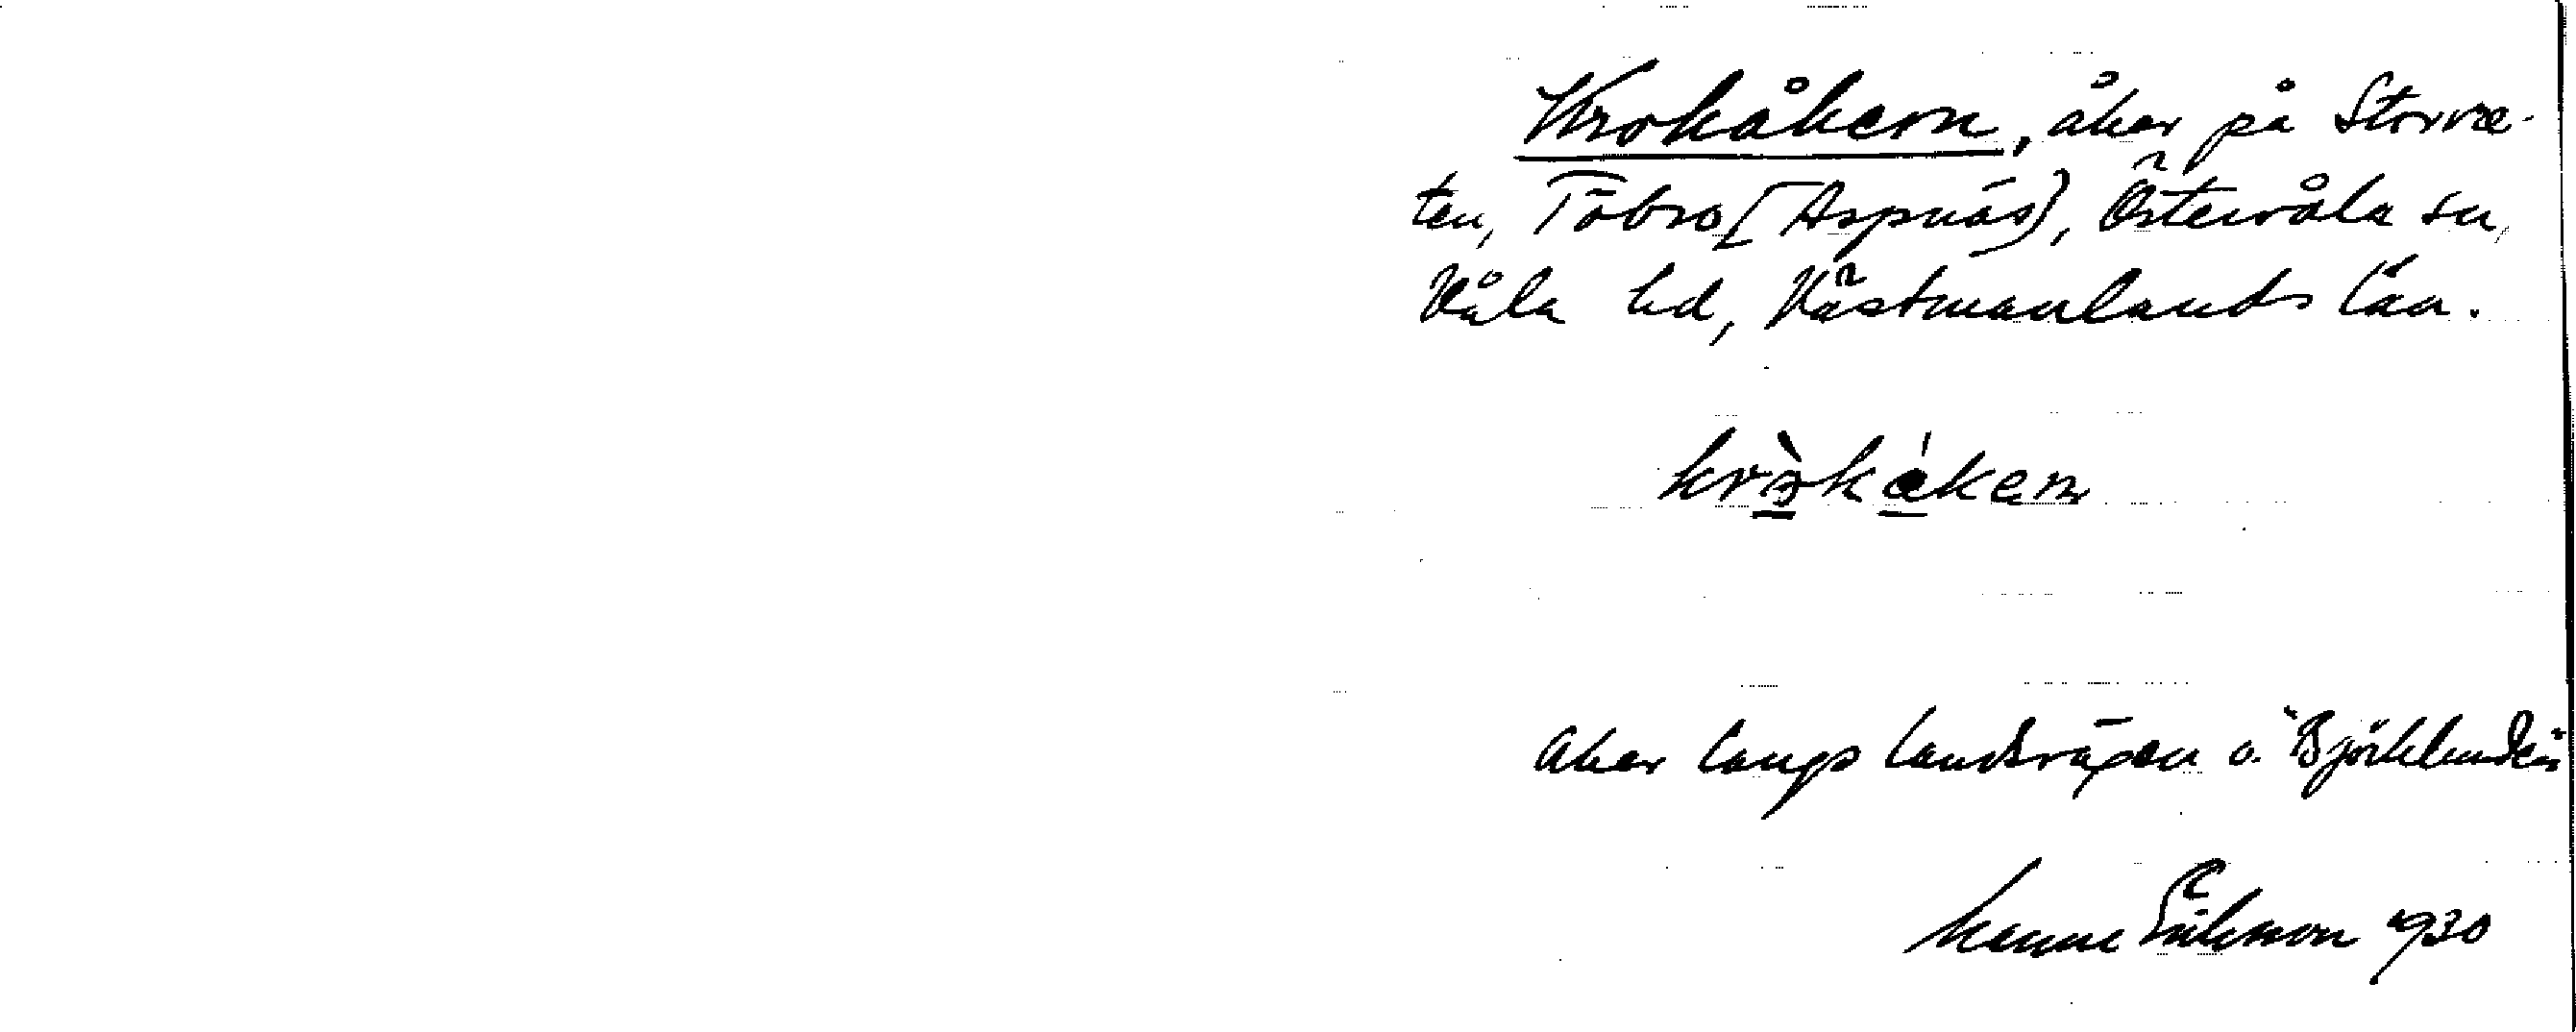 Krokåkern, åker på Storvre-
ten, Töbro (Aspnäs), Östervåla sn,
Våla hd, Västmanlands län.
Åker längs landsvägen o. "Björklundsk"
Manne Eriksson 1930